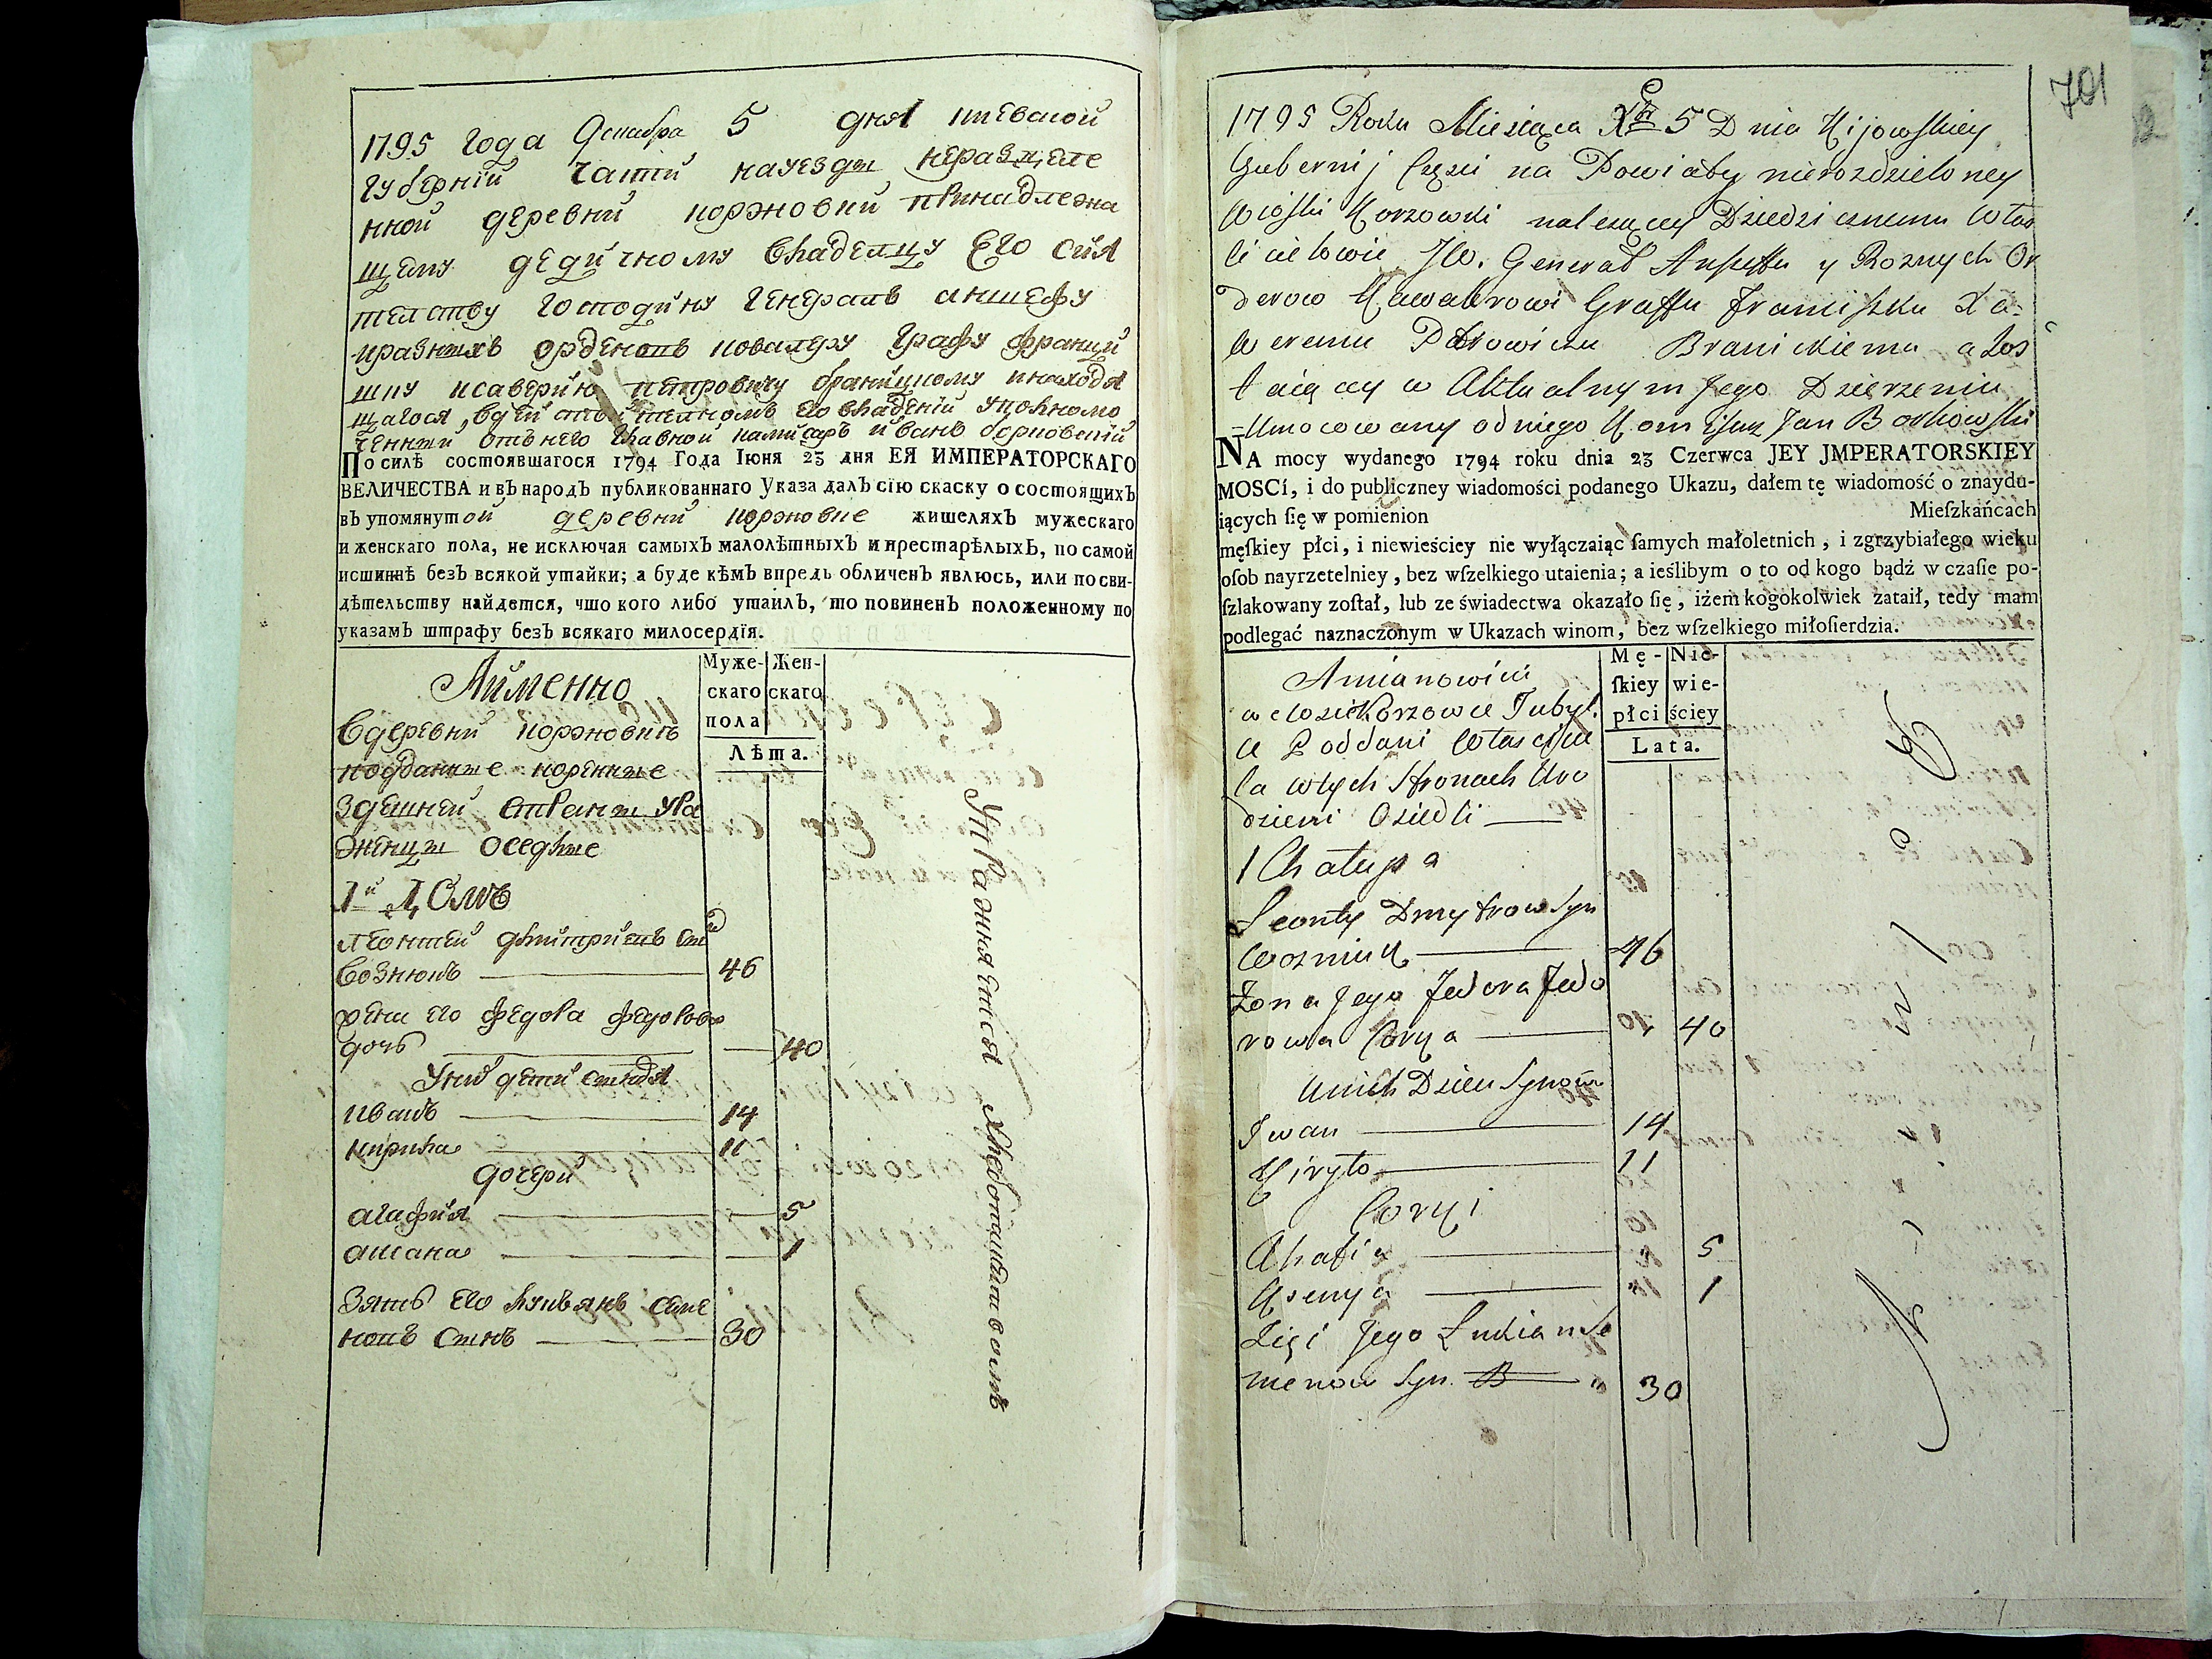 1795 года декабря 5 дня киевской
губернїи части науезды неразделе
нной деревни коржовки принадлежа
щему дедичному владелцу его сия
телству господину генералъ аншефу
иразныхъ орденовъ ковалеру графу францы
шку ксаверию петровичу браницкому инаходя
щагося, вдействителномъ его владении уполномо
ченный отънего главной камисаръ иванъ борковский
По силѣ состоявшагося 1794 Года Іюня 23 дня ЕЯ ИМПЕРАТОРСКАГО
ВЕЛИЧЕСТВА и въ народъ публикованнаго Указа далъ сїю скаску о состоящихъ
въ упомянутой деревни коржовке жителяхъ мужескаго
и женскаго пола, не исключая самыхъ малолѣтныхъ и престарѣлыхъ, по самой
истиннѣ безъ всякой утайки; а буде кѣмъ впредь обличенъ явлюсь, или по сви-
дѣтельству найдется, что кого либо утаилъ, то повиненъ положенному по
указамъ штрафу безъ всякаго милосердїя.
Аимѣнно
Муже-
скаго
пола
Жен-
скаго
Лѣта.
Вдеревни коржовкѣ
подданные коренные
здешней страны уро
женцы оседлые
1й Домъ
леонтей дмитриевъ сынъ
вознюкъ 46
жена его федора федорова
дочь 40
Унихъ дети сыновья
иванъ 14
кирила 11
дочери
агафия 5
аксана 1
Зять его лукьянъ семе
новъ сынъ 30
Упражняется хлебопашествомъ
701
1795 Roku Miesiąca Xbr 5 Dnia Kijowskiey
Gubernij Części na Powiaty nierozdzieloney
Wioski Korzowki należącey Dziedzicznemu Właś
cicielowie JW. Generał Anszeffu y Roznych Or
derow Kawalerowi Graffu Franciszku Xa=
weremu Petrowiczu Branickiemu a Zos
taiącey w Aktualnym Jego Dzierzeniu
=Umocowany odniego Komisarz Jan Borkowski
NA mocy wydanego 1794 roku dnia 23 Czerwca JEY JMPERATORSKIEY
MOSCí, i do publiczney wiadomości podanego Ukazu, dałem tę wiadomość o znaydu-
iących ſię w pomienion Mieſzkańcach
męſkiey płci, i niewieściey nie wyłączaiąc ſamych małoletnich, i zgrzybiałego wieku
oſob nayrzetelniey, bez wſzelkiego utaienia; a ieślibym o to od kogo bądź w czaſie po-
ſzlakowany zoſtał, lub ze świadectwa okazało ſię, iżem kogokolwiek zataił, tedy mam
podlegać naznaczonym w Ukazach winom, bez wſzelkiego miłoſierdzia.
Amianowici
Mę-
ſkiey
płci
Nie-
wie-
ściey
Lata.
w Wosi Korzowce Tubyl.
ce Poddani Właściwi
la wtych Stronach Uro
dzieni Osiedli
1 Chałupa
Leonty Dmytrow Syn
Wozniuk 46
Zona Jego Fedora Fedo
rowa Corka 40
Unich Dzieci Synow
Iwan 14
Kiryło 11
Corki
Ahafia 5
Xsenya 1
Zięć Jego Łukian Se
menow Syn 30